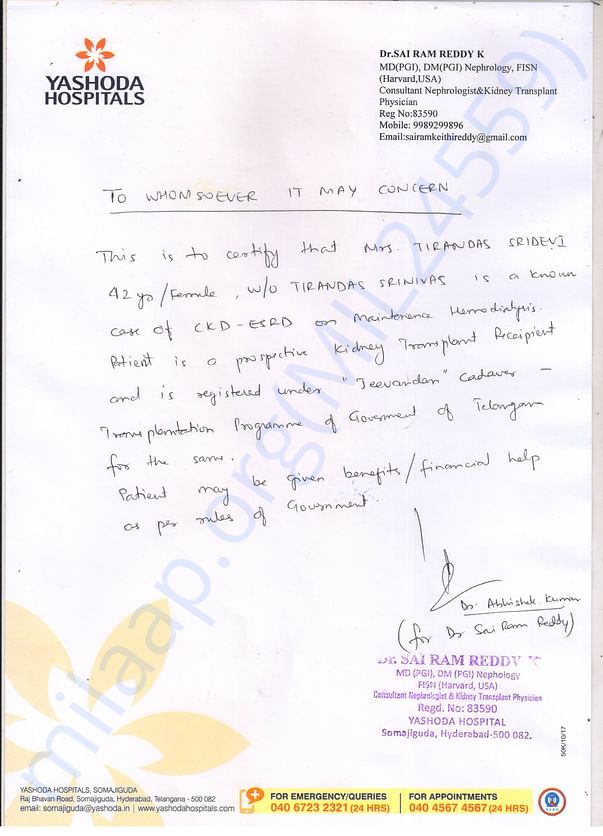 YASHODA
HOSPITALS
Dr.SAI RAM REDDY K
MD(PGI), DM(PGI) Nephrology, FISN
(Harvard,USA)
Consultant Nephrologist&Kidney Transplant
Physician
Reg No:83590
Mobile: 9989299896
Email:sairamkeithireddy@gmail.com
TO WHOMSOEVER IT MAY CONCERN
This is to certify that Mrs. TIRANDAS SRIDEVI
42 yo/Female, W/O TIRANDAS SRINIVAS is a known
case of CKD-ESRD on Maintenence Hemodialysis.
Patient is a prospective Kidney Transplant Receipient
and is registered under "Jeevandan" Cadaver -
Transplantation Programme of Goverment of Telangana
for the same.
Patient may be given benefits/financial help
as per rules of Government.
Dr. Abhishek Kumar
(for Dr Sai Ram Reddy)
Dr. SAI RAM REDDY K
MD (PGI), DM (PGI) Nephology
FISN (Harvard, USA)
Consultant Nephrologist & Kidney Transplant Physician
Regd. No: 83590
YASHODA HOSPITAL
Somajiguda, Hyderabad-500 082.
50K/10/17
milaap.org(MIL24559)
YASHODA HOSPITALS, SOMAJIGUDA
Raj Bhavan Road, Somajiguda, Hyderabad, Telangana - 500 082
email: somajiguda@yashoda.in | www.yashodahospitals.com
FOR EMERGENCY/QUERIES
040 6723 2321 (24 HRS)
FOR APPOINTMENTS
040 4567 4567 (24 HRS)